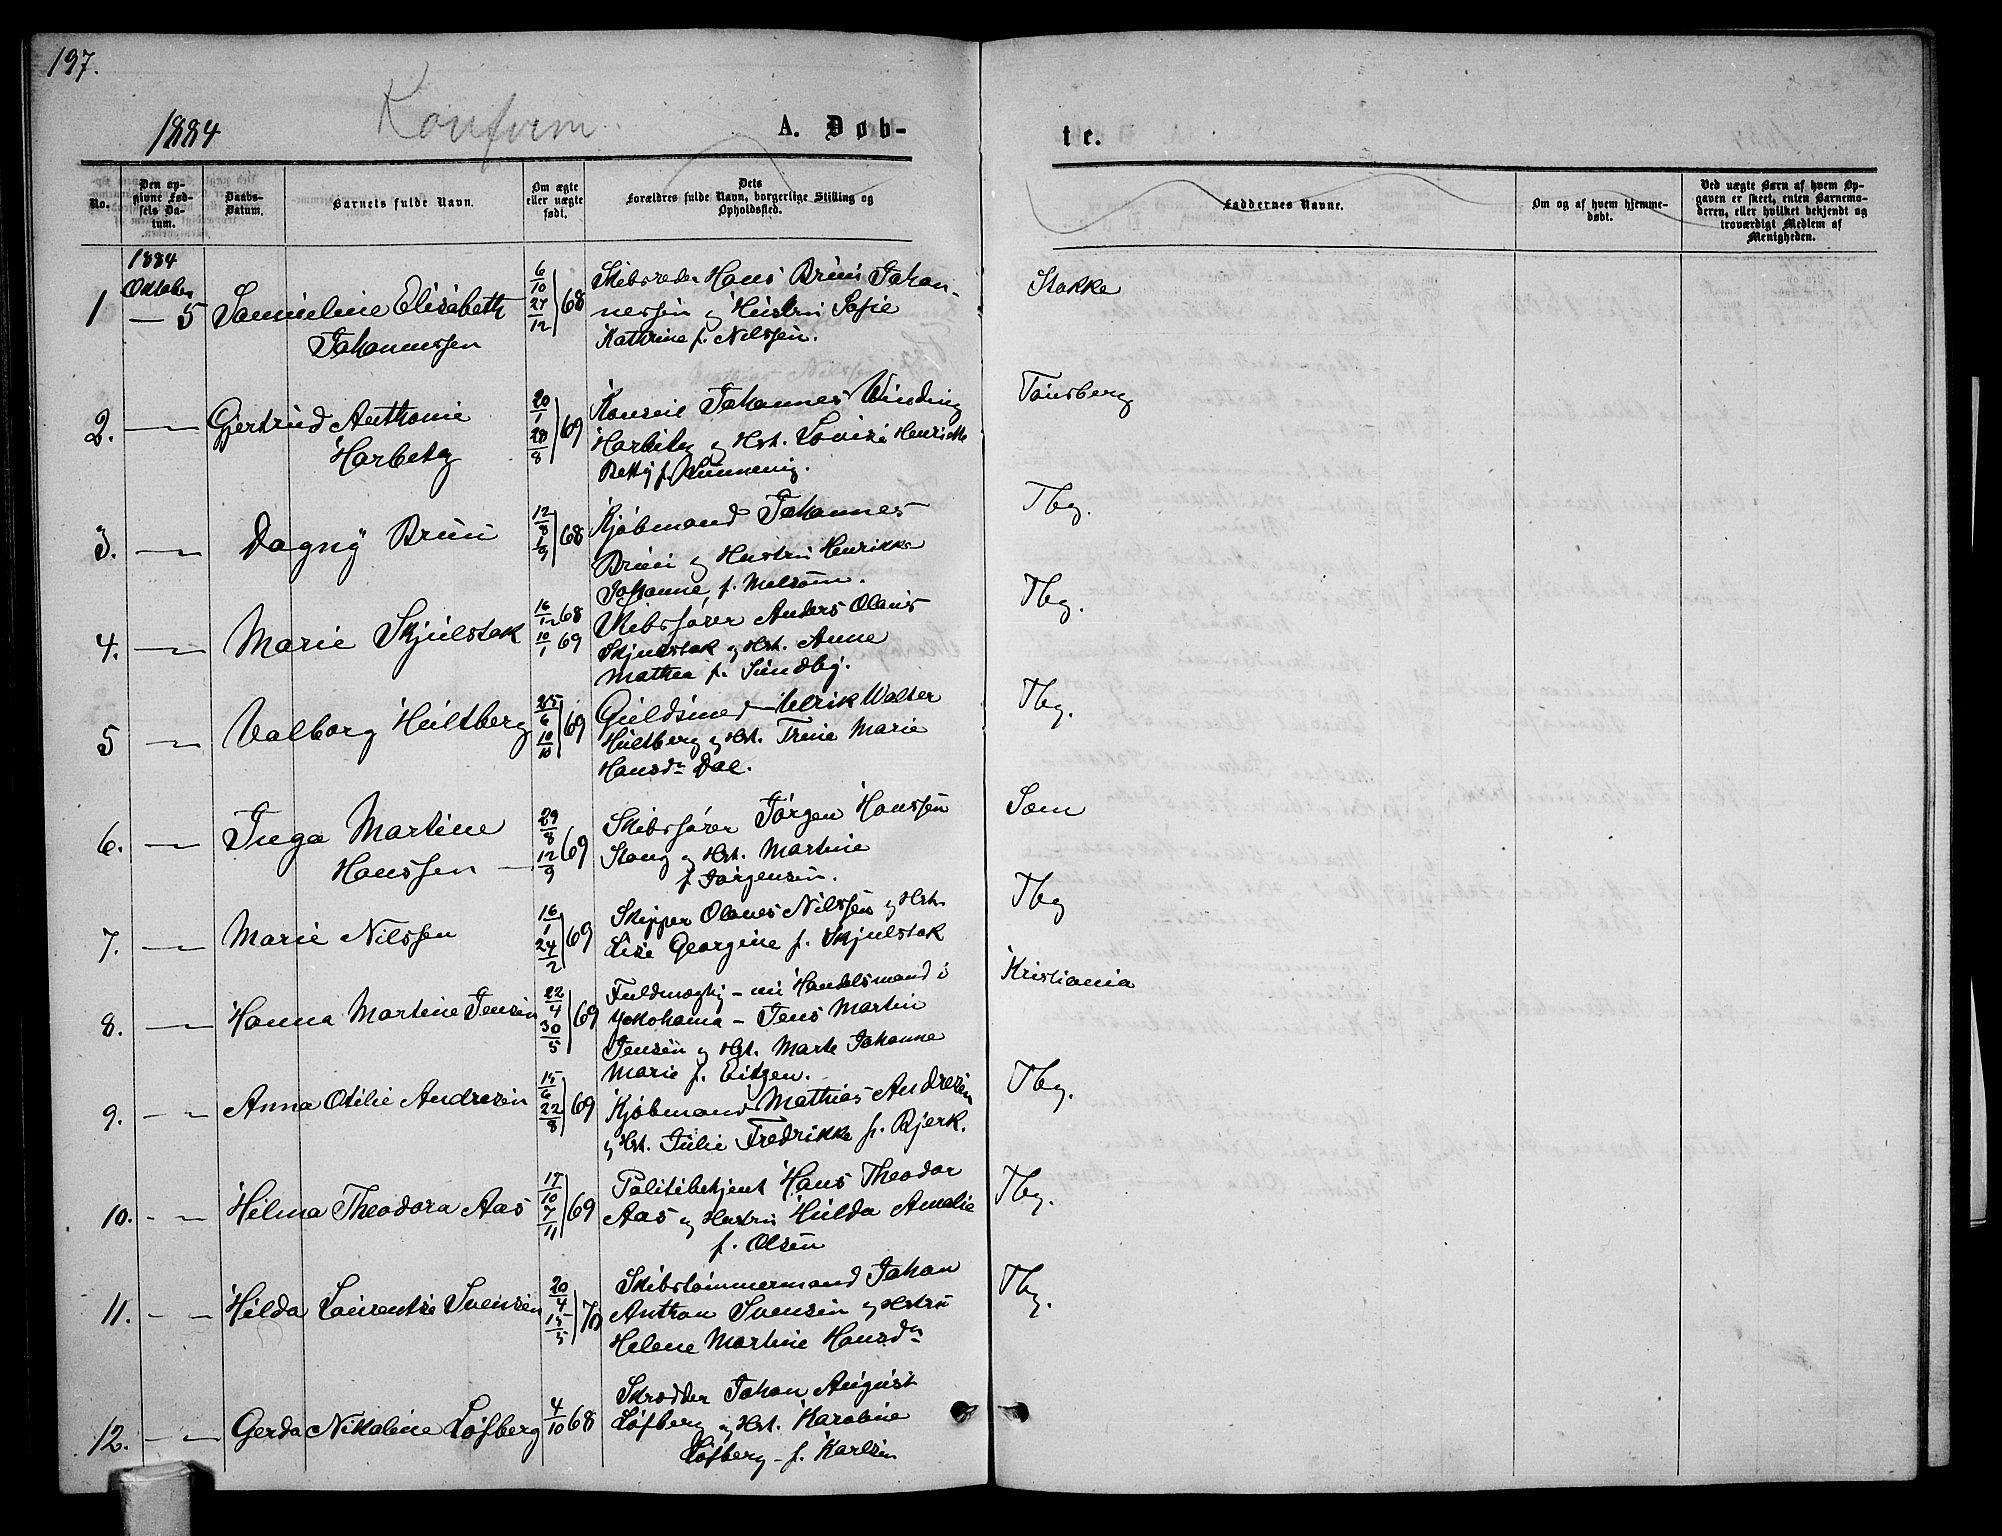 197.
1884
Konfirm.
A. Døb-
te.
No.
Den op-
givne Fød-
sels Da-
tum.
Daabs-
Datum.
Barnets fulde Navn.
Om ægte
eller uægte
født.
Dets
Forældres fulde Navn, borgerlige Stilling og
Opholdssted.
Faddernes Navne.
Om og af hvem hjemme-
døbt.
Ved uægte Børn af hvem Op-
gaven er skeet, enten Barnemo-
deren, eller hvilket bekjendt og
troværdigt Medlem af
Menigheden.
1884
Oktober
1 — 5 Samueline Elisabeth
Johannessen
6/10 27/12 68
Skibsreder Hans Bruun Johan-
nessen og Hustru Sofie
Kathrine f. Nilssen.
Stokke
2. —„— Gjertrud Anthonie
Harbitz
20/1 28/8 69
Konseil Johannes Winding
Harbitz og Hst. Lovise Henriette
Betty f.
Tønsberg
3. —„— Dagny Bruun
12/8 1/9 68
Kjøbmand Johannes
Bruun og Hustru Henrikke
Johanne, f. Melsom.
Tbg.
4. —„— Marie Skjelstok
16/12 68
10/1 69
Skibsfører Anders Olaus
Skjelstok og Hst. Anne
Mathea f. Sundby.
Tbg.
5 —„— Valborg Hultberg
25/6 10/10 69
Guldsmed Ulrik Walter
Hultberg og Hst. Trine Marie
Hansdr Dal.
Tbg.
6. —„— Inga Martine
Hanssen
29/8 12/9 69
Skibsfører Jørgen Hanssen
Stang og Hst. Martine
f. Jørgensen.
Sæm
7. —„— Marie Nilssen
16/1 24/2 69
Skipper Olaves Nilssen og Hst.
Lise Georgine f. Skjelstok
Tbg
8. —„— Hanna Martine Jensen
22/4 30/5 69
Fuldmægtig – nu Handelsmand i
Yokohama – Jens Martin
Jensen og Hst. Marte Johanne
Marie f. Eitzen.
Kristiania
9. —„— Anna Otilie Andresen
15/6 22/8 69
Kjøbmand Mathias Andresen
og Hst. Julie Fredrikke f. Bjerk.
Tbg.
10. —„— Hilma Theodora Aas
17/10 7/11 69
Politibetjent Hans Theodor
Aas og Hustru Hulda Amalie
f. Olsen
Tbg.
11. —„— Hilda Laurentze Svensen
20/4 15/5 70
Skibstømmermand Johan
Anthon Svensen og Hstru
Helene Martine Hansdr
Tbg.
12. —„— Gerda Nikoline Løfberg
4/10 68
Skrædder Johan August
Løfberg og Hst. Karoline
Løfberg – f. Karlsen